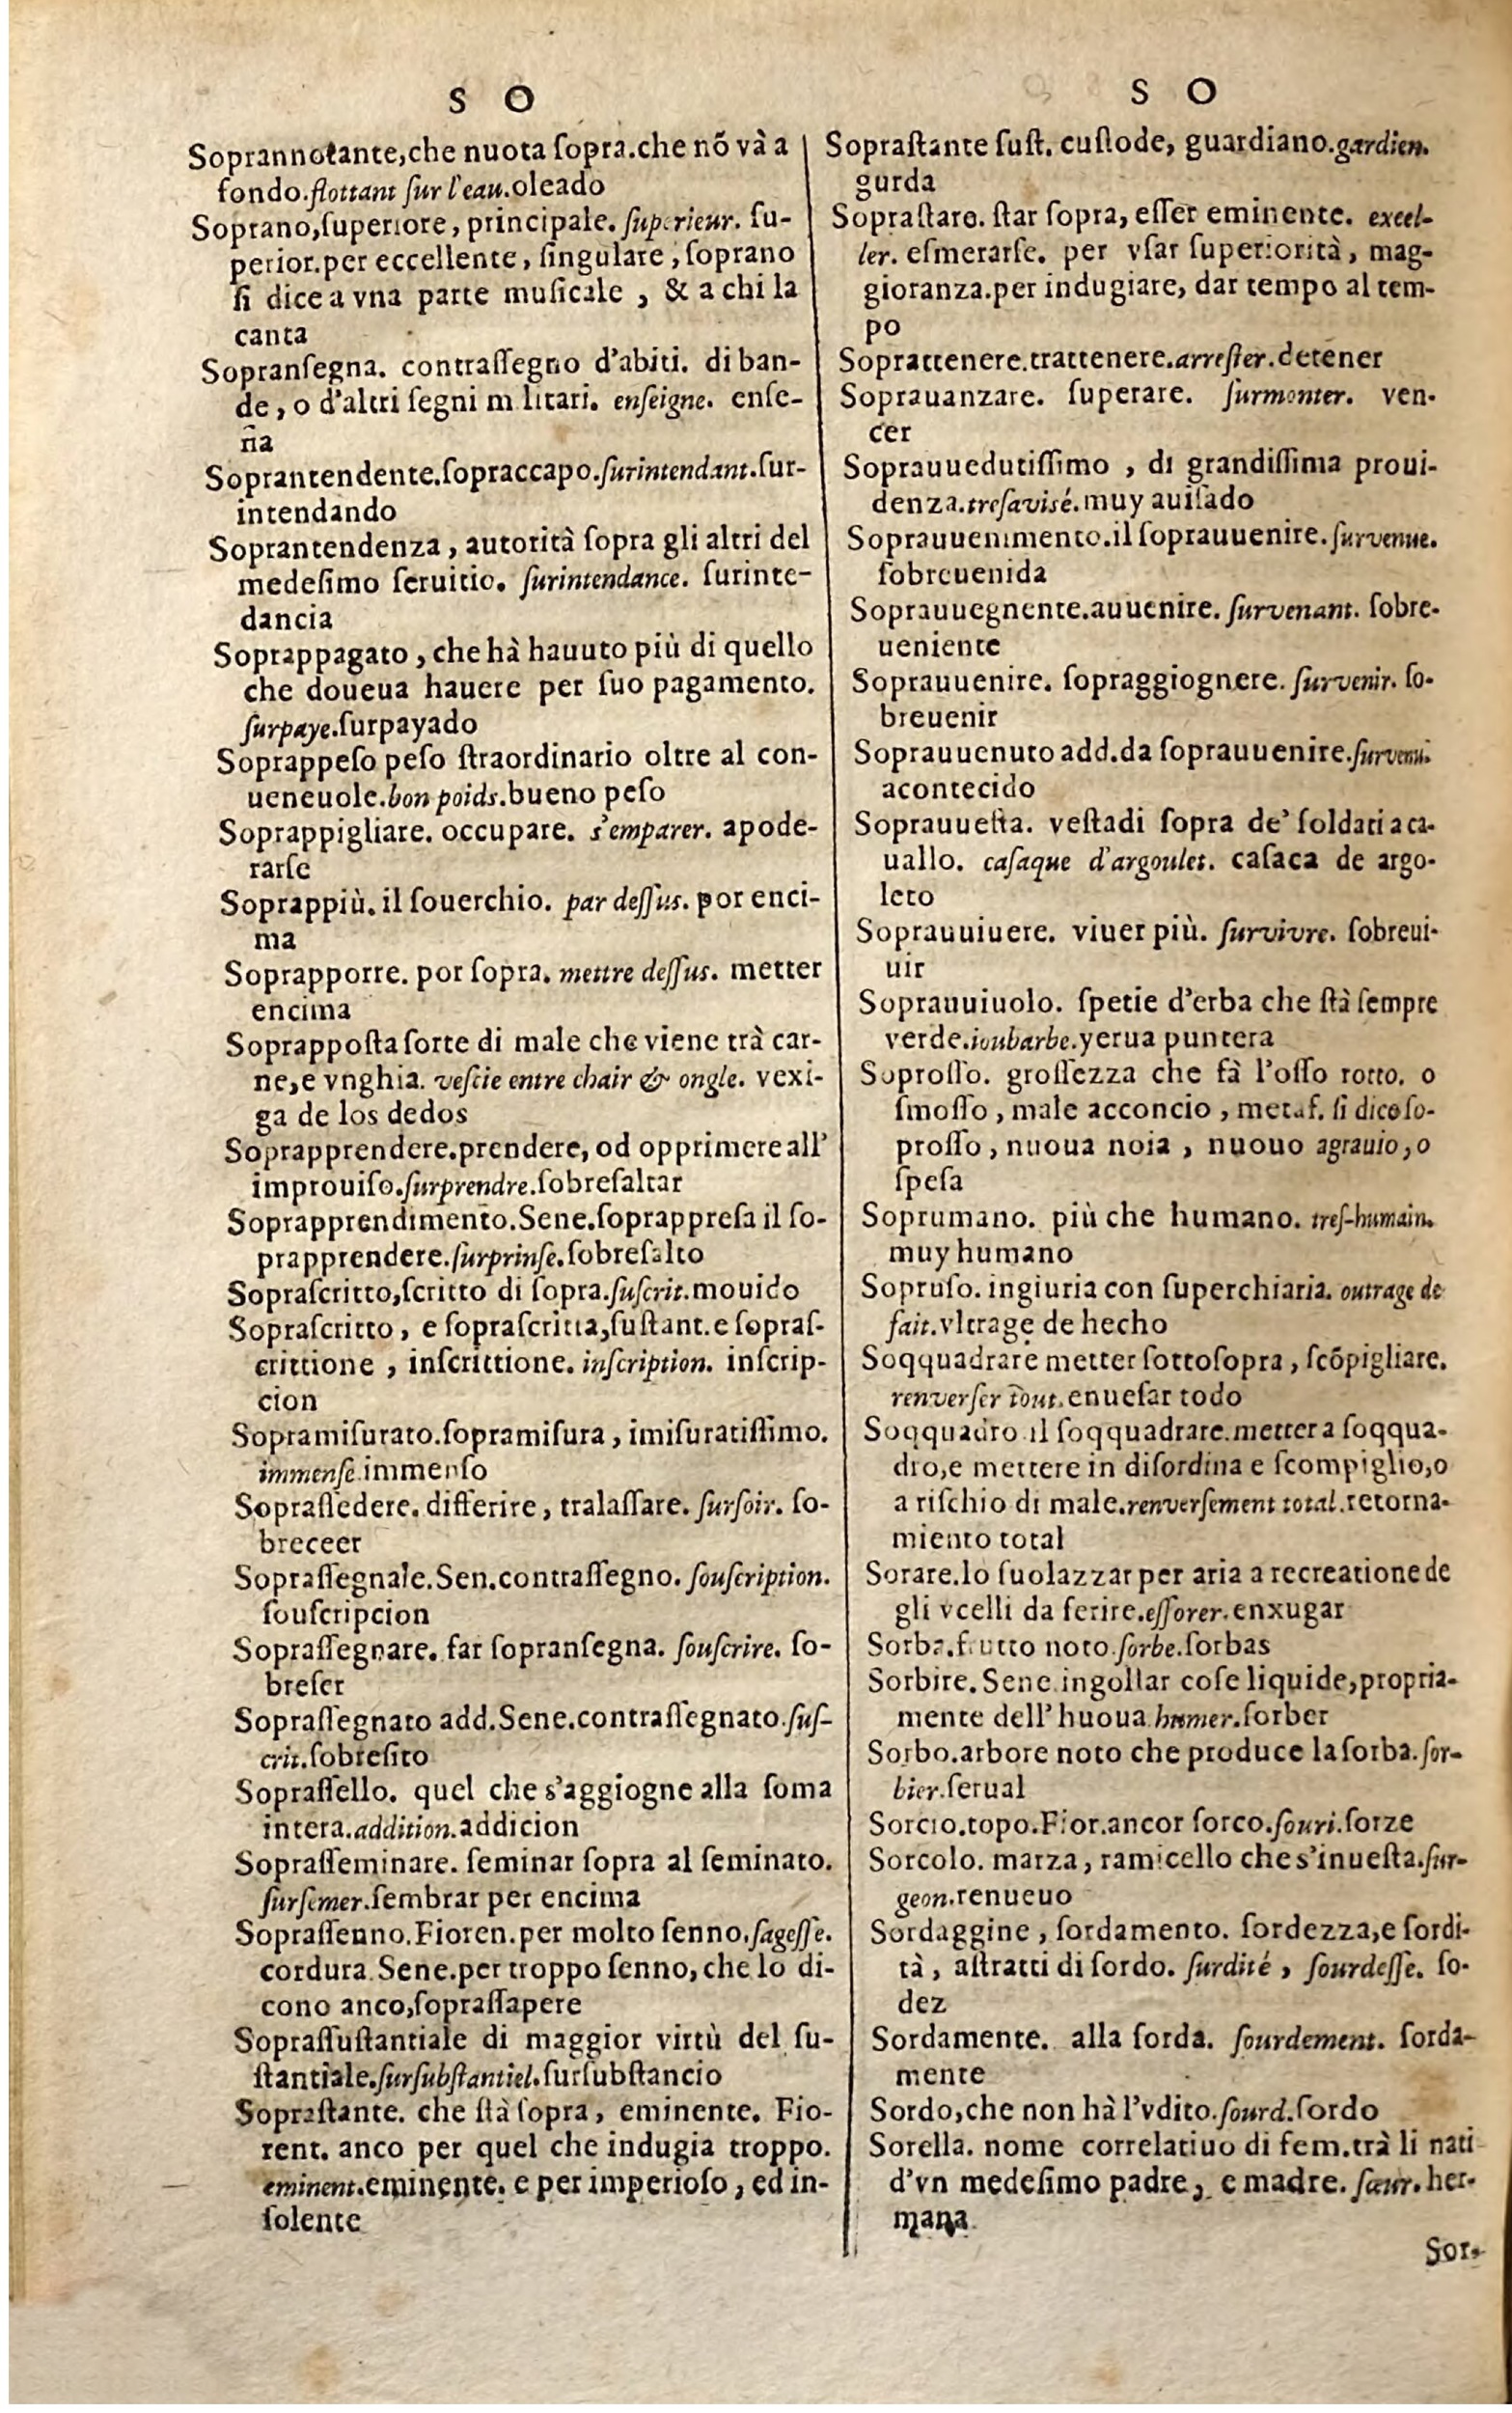 S O
Soprannotante,che nuota ſopra.che nõ và a
fondo.flottant ſur l'eau.oleado
Soprano,ſuperiore, principale. ſuperieur. ſu-
perior.per eccellente, ſingulare, ſoprano
ſi dice a vna parte muſicale, & a chi la
canta
Sopranſegna. contraſſegno d'abiti. di ban-
de, o d'altri ſegni militari. enſeigne. enſe-
ña
Soprantendente.ſopraccapo.ſurintendant.ſur-
intendando
Soprantendenza, autorità ſopra gli altri del
medeſimo ſeruitio. ſurintendance. ſurinte-
dancia
Soprappagato, che hà hauuto più di quello
che doueua hauere per ſuo pagamento.
ſurpaye.ſurpayado
Soprappeſo peſo ſtraordinario oltre al con-
ueneuole.bon poids.bueno peſo
Soprappigliare. occupare. s'emparer. apode-
rarſe
Soprappiù. il ſouerchio. par deſſus. por enci-
ma
Soprapporre. por ſopra. mettre deſſus. metter
encima
Soprappoſta ſorte di male che viene trà car-
ne,e vnghia. veſcie entre chair & ongle. vexi-
ga de los dedos
Soprapprendere.prendere, od opprimere all'
improuiſo.ſurprendre.ſobreſaltar
Soprapprendimento.Sene.ſoprappreſa il ſo-
prapprendere.ſurprinſe.ſobreſalto
Sopraſcritto,ſcritto di ſopra.ſuſcrit.mouido
Sopraſcritto, e ſopraſcritta,ſuſtant.e ſopraſ-
crittione, inſcrittione. inſcription. inſcrip-
cion
Sopramiſurato.ſopramiſura, imiſuratiſſimo.
immenſe.immenſo
Sopraſſedere. differire, tralaſſare. ſurſoir. ſo-
breceer
Sopraſſegnale.Sen.contraſſegno. ſouſcription.
ſouſcripcion
Sopraſſegnare. far ſopranſegna. ſouſcrire. ſo-
breſer
Sopraſſegnato add.Sene.contraſſegnato.ſuſ-
crit.ſobreſito
Sopraſſello. quel che s'aggiogne alla ſoma
intera.addition.addicion
Sopraſſeminare. ſeminar ſopra al ſeminato.
ſurſemer.ſembrar per encima
Sopraſſenno.Fioren.per molto ſenno.ſageſſe.
cordura.Sene.per troppo ſenno, che lo di-
cono anco,ſopraſſapere
Sopraſſuſtantiale di maggior virtù del ſu-
ſtantiale.ſurſubſtantiel.ſurſubſtancio
Sopraſtante. che ſtà ſopra, eminente. Fio-
rent. anco per quel che indugia troppo.
eminent.eminente. e per imperioſo, ed in-
ſolente
S O
Sopraſtante ſuſt. cuſtode, guardiano.gardien.
gurda
Sopraſtare. ſtar ſopra, eſſer eminente. excel-
ler. eſmerarſe. per vſar ſuperiorità, mag-
gioranza.per indugiare, dar tempo al tem-
po
Soprattenere.trattenere.arreſter.detener
Soprauanzare. ſuperare. ſurmonter. ven-
cer
Soprauuedutiſſimo, di grandiſſima proui-
denza.treſavisé.muy auiſado
Soprauuenimento.il ſoprauuenire.ſurvenue.
ſobreuenida
Soprauuegnente.auuenire. ſurvenant. ſobre-
ueniente
Soprauuenire. ſopraggiognere. ſurvenir. ſo-
breuenir
Soprauuenuto add.da ſoprauuenire.ſurvenu.
acontecido
Soprauueſta. veſtadi ſopra de' ſoldati a ca-
uallo. caſaque d'argoulet. caſaca de argo-
leto
Soprauuiuere. viuer più. ſurvivre. ſobreui-
uir
Soprauuiuolo. ſpetie d'erba che ſtà ſempre
verde.ioubarbe.yerua puntera
Soproſſo. groſſezza che fà l'oſſo rotto. o
ſmoſſo, male acconcio, metaf. ſi dice ſo-
proſſo, nuoua noia, nuouo agrauio, o
ſpeſa
Soprumano. più che humano. treſ-humain.
muy humano
Sopruſo. ingiuria con ſuperchiaria. outrage de
fait.vltrage de hecho
Soqquadrare metter ſottoſopra, ſcõpigliare.
renverſer tout.enueſar todo
Soqquadro il ſoqquadrare.metter a ſoqqua-
dro,e mettere in diſordina e ſcompiglio,o
a riſchio di male.renverſement total.retorna-
miento total
Sorare.lo ſuolazzar per aria a recreatione de
gli vcelli da ferire.eſſorer.enxugar
Sorba.frutto noto.ſorbe.ſorbas
Sorbire.Sene.ingollar coſe liquide,propria-
mente dell'huoua.humer.ſorber
Sorbo.arbore noto che produce la ſorba.ſor-
bier.ſerual
Sorcio.topo.Fior.ancor ſorco.ſouri.ſorze
Sorcolo. marza, ramicello che s'inueſta.ſur-
geon.renueuo
Sordaggine, ſordamento. ſordezza,e ſordi-
tà, aſtratti di ſordo. ſurdité, ſourdeſſe. ſo-
dez
Sordamente. alla ſorda. ſourdement. ſorda-
mente
Sordo,che non hà l'vdito.ſourd.ſordo
Sorella. nome correlatiuo di fem.trà li nati
d'vn medeſimo padre, e madre. ſœur.her-
mana
Sor-